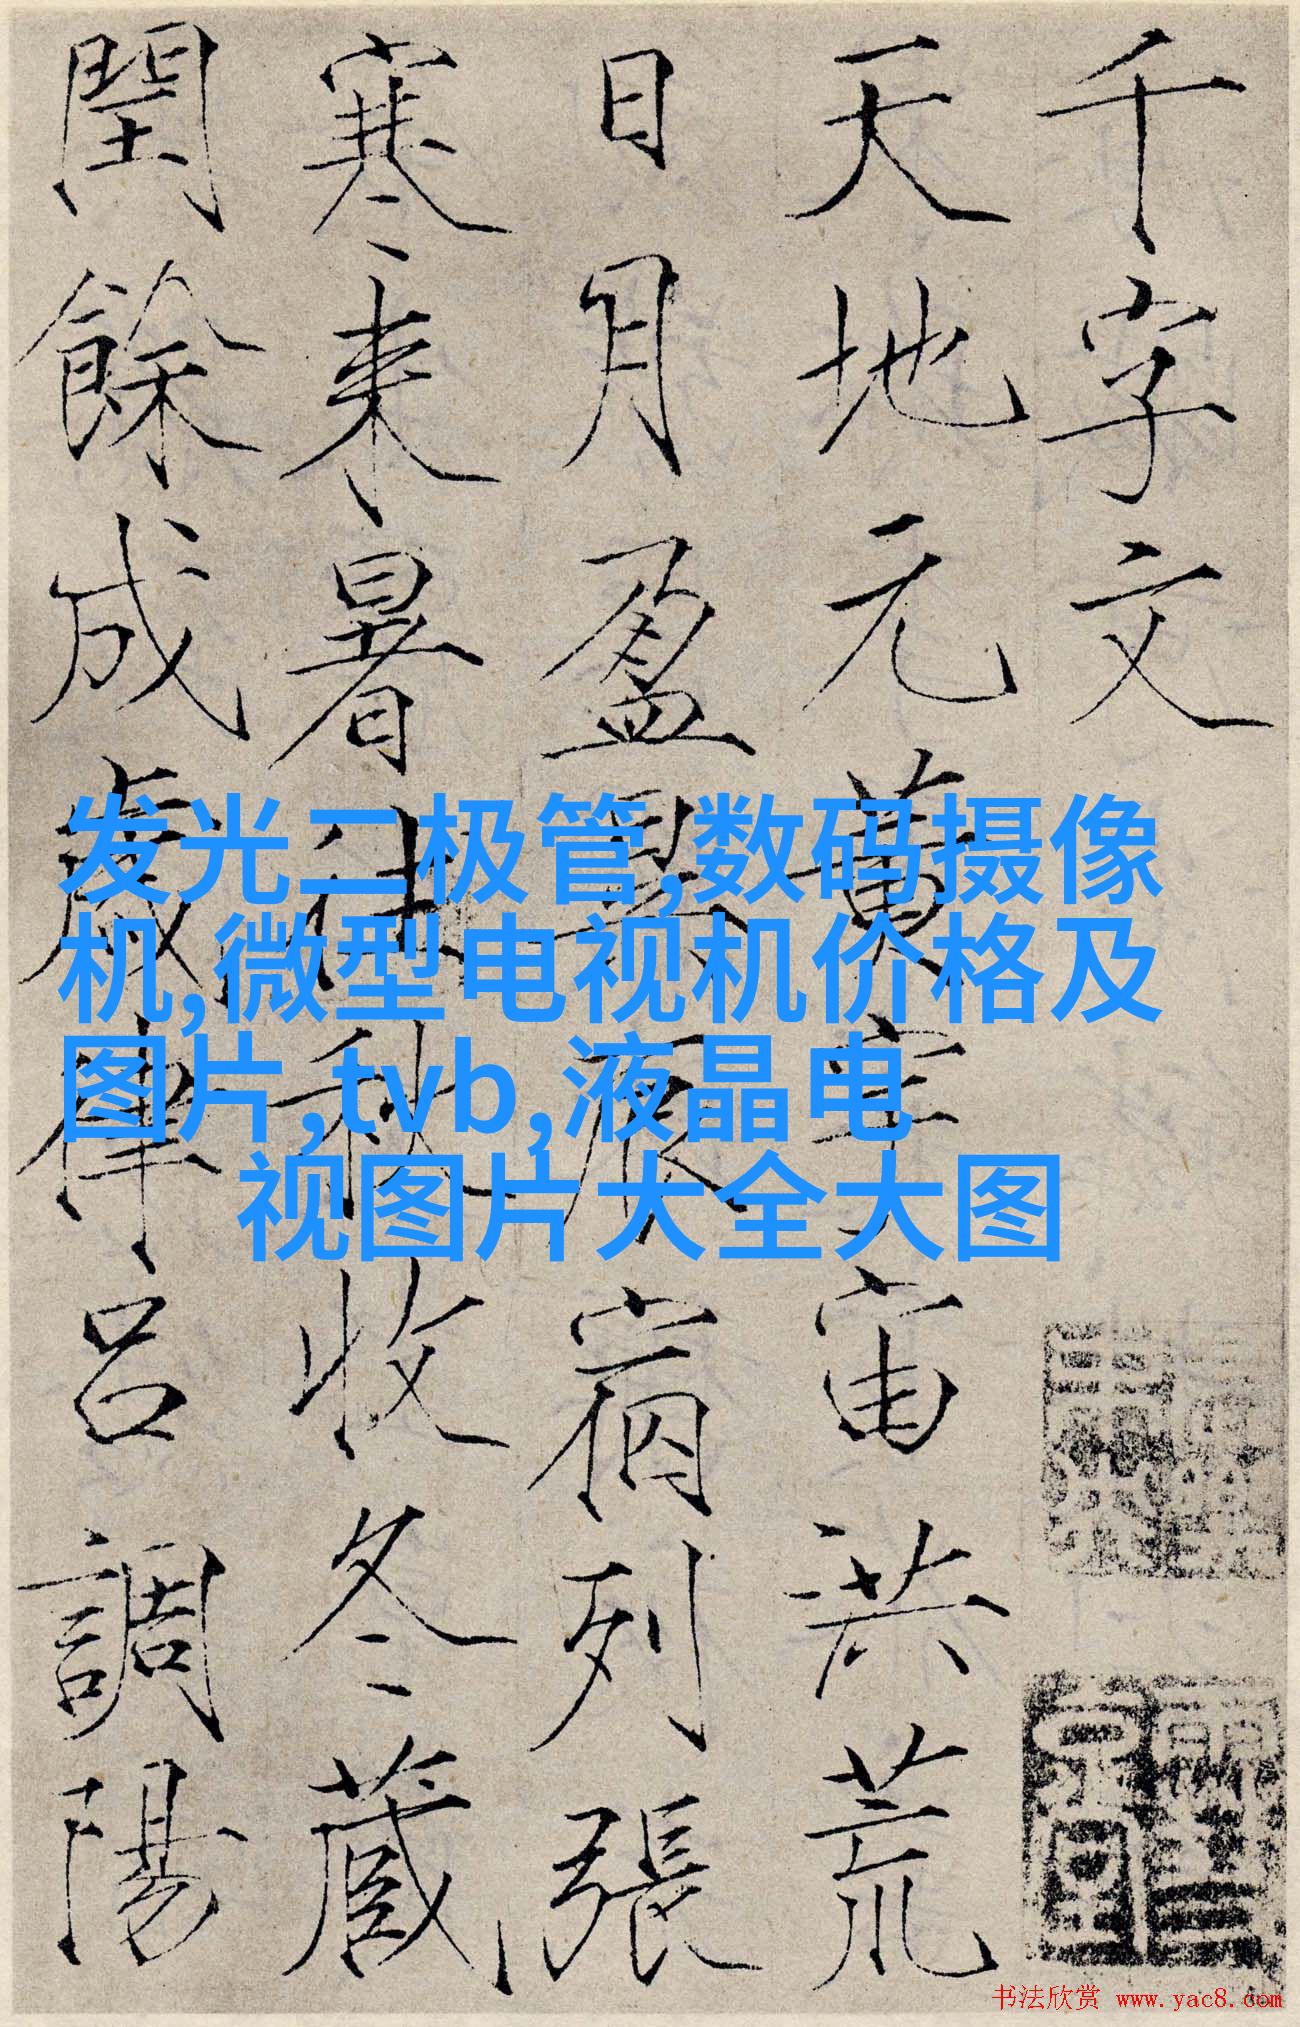 千字文
天地元黄宇宙洪荒
日月盈昃辰宿列張
寒来暑往秋收冬蔵
閏餘成歲律呂調陽
发光二极管,数码摄像
机,微型电视机价格及
图片,tvb,液晶电
视图片大全大图
书法欣赏 www.yac8.com